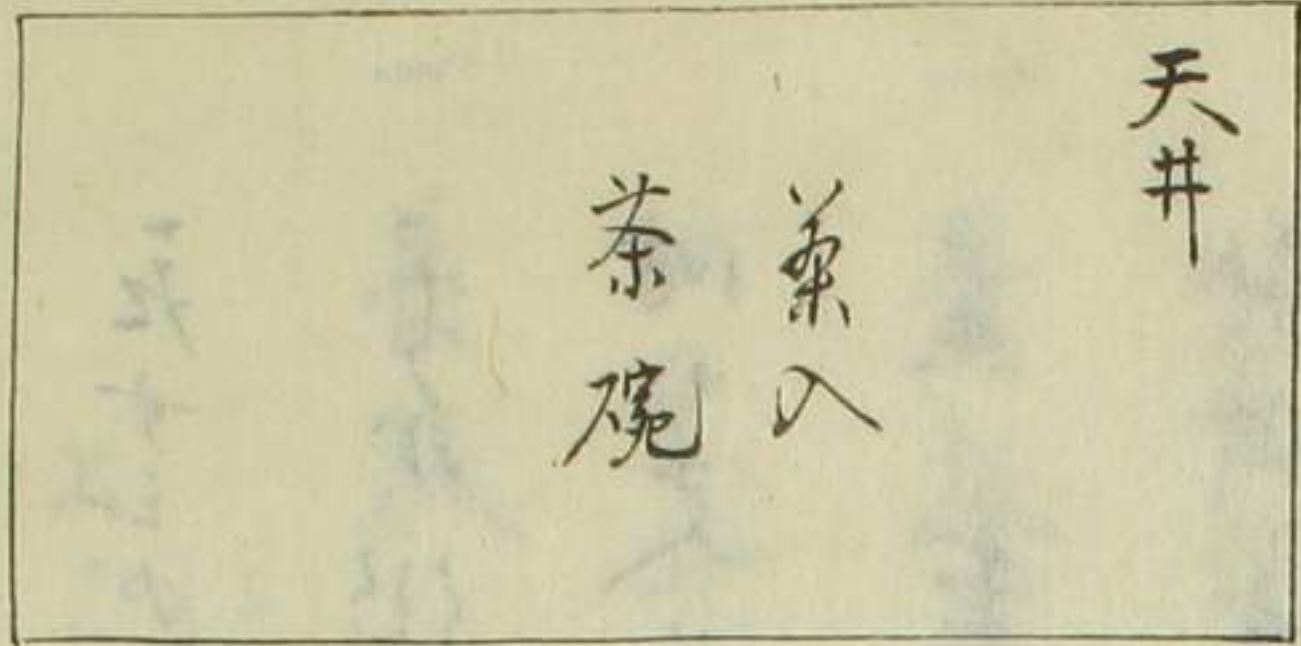 天井
茶入
茶碗